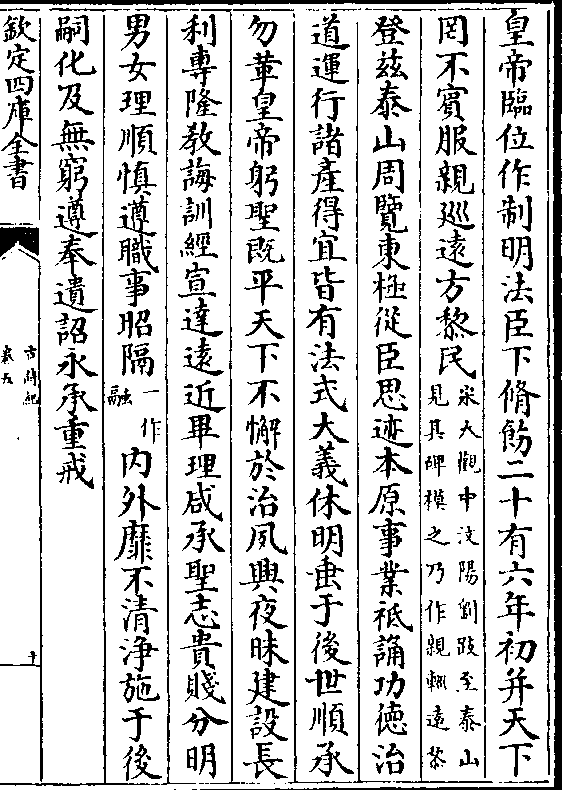 皇帝臨位作制明法臣下脩飭二十有六年初并天下
罔不賓服親廵遠方黎民宋大觀中汶陽劉跂至泰山見其碑模之乃作親輙遠黎
登兹泰山周覽東極從臣思迹本原事業祗誦功德治
道運行諸產得宜皆有法式大義休明垂于後世順承
勿革皇帝躬聖既平天下不懈於治夙興夜昧建設長
利專隆教誨訓經宣達遠近畢理咸承聖志貴賤分明
男女理順慎遵職事昭隔一作融内外靡不清浄施于後
嗣化及無窮遵奉遺詔永承重戒
欽定四庫全書
卷五